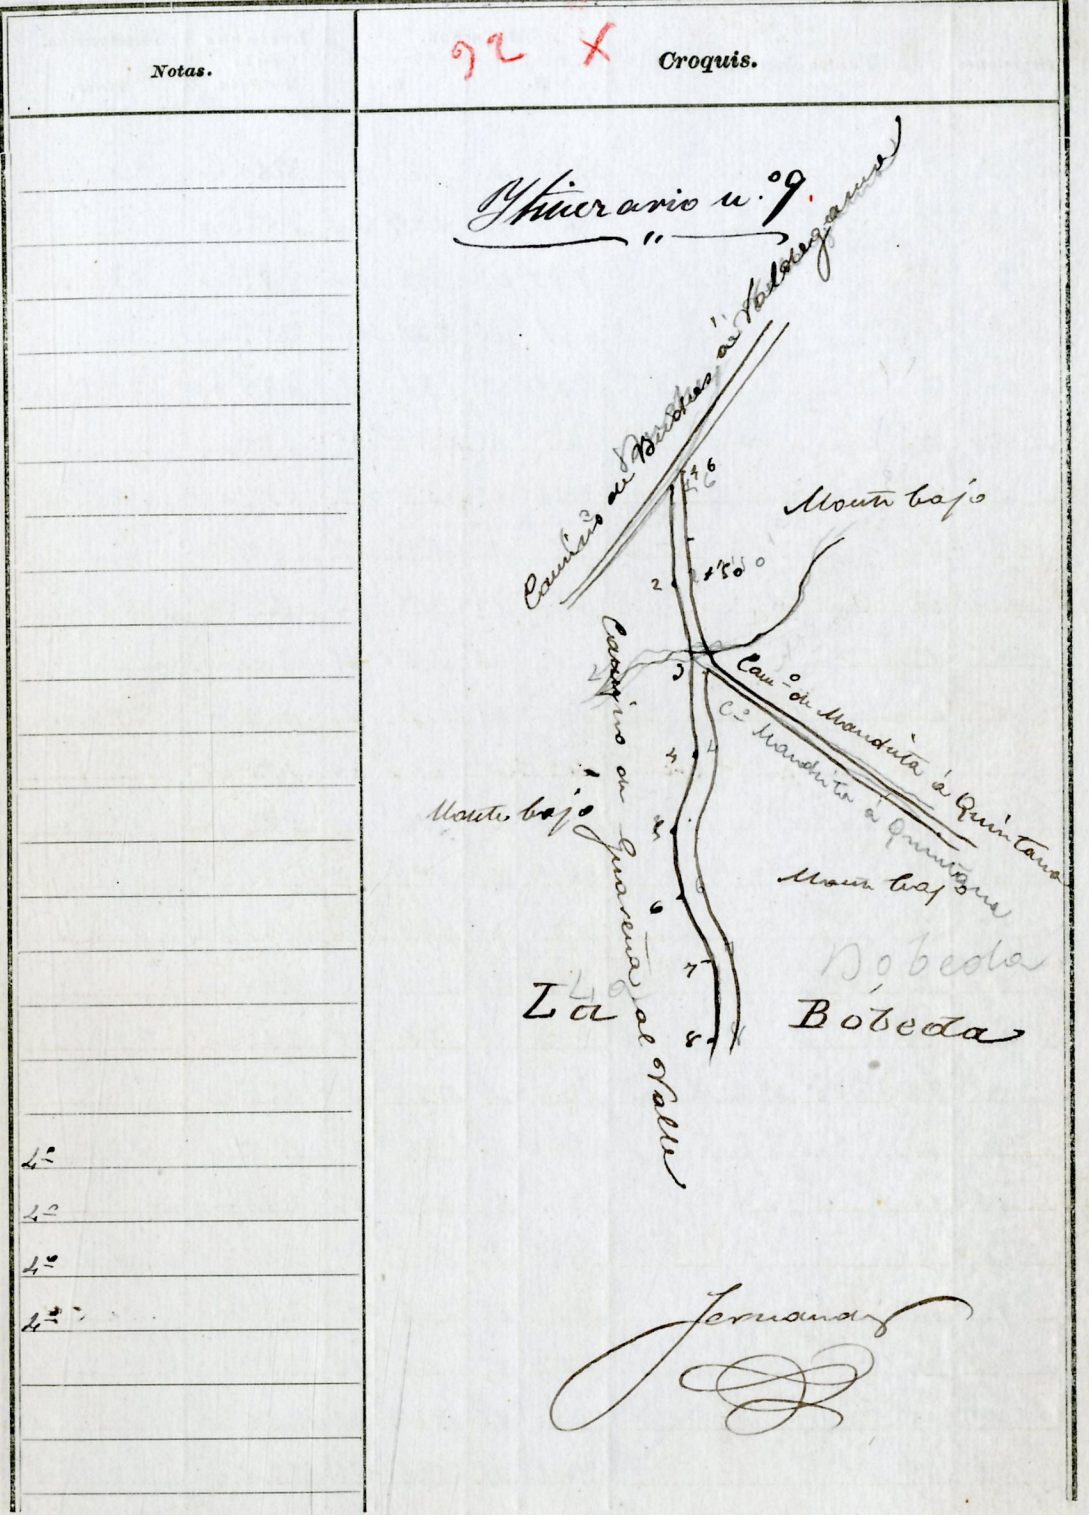 Notas.
92 X
Croquis.
Itinerario n.º 9.
Camino de à Valdegama
Monte bajo
6
2
+'50
3
Camº de Mandrita à Quintana
Cº Mandrita à Quintana
4
4
Camino de Guareña al Valle
Monte bajo
5
6
Monte bajo
7
Bóbeda
La Bóbeda
8
4º
4º
4º
4º
Fernandez